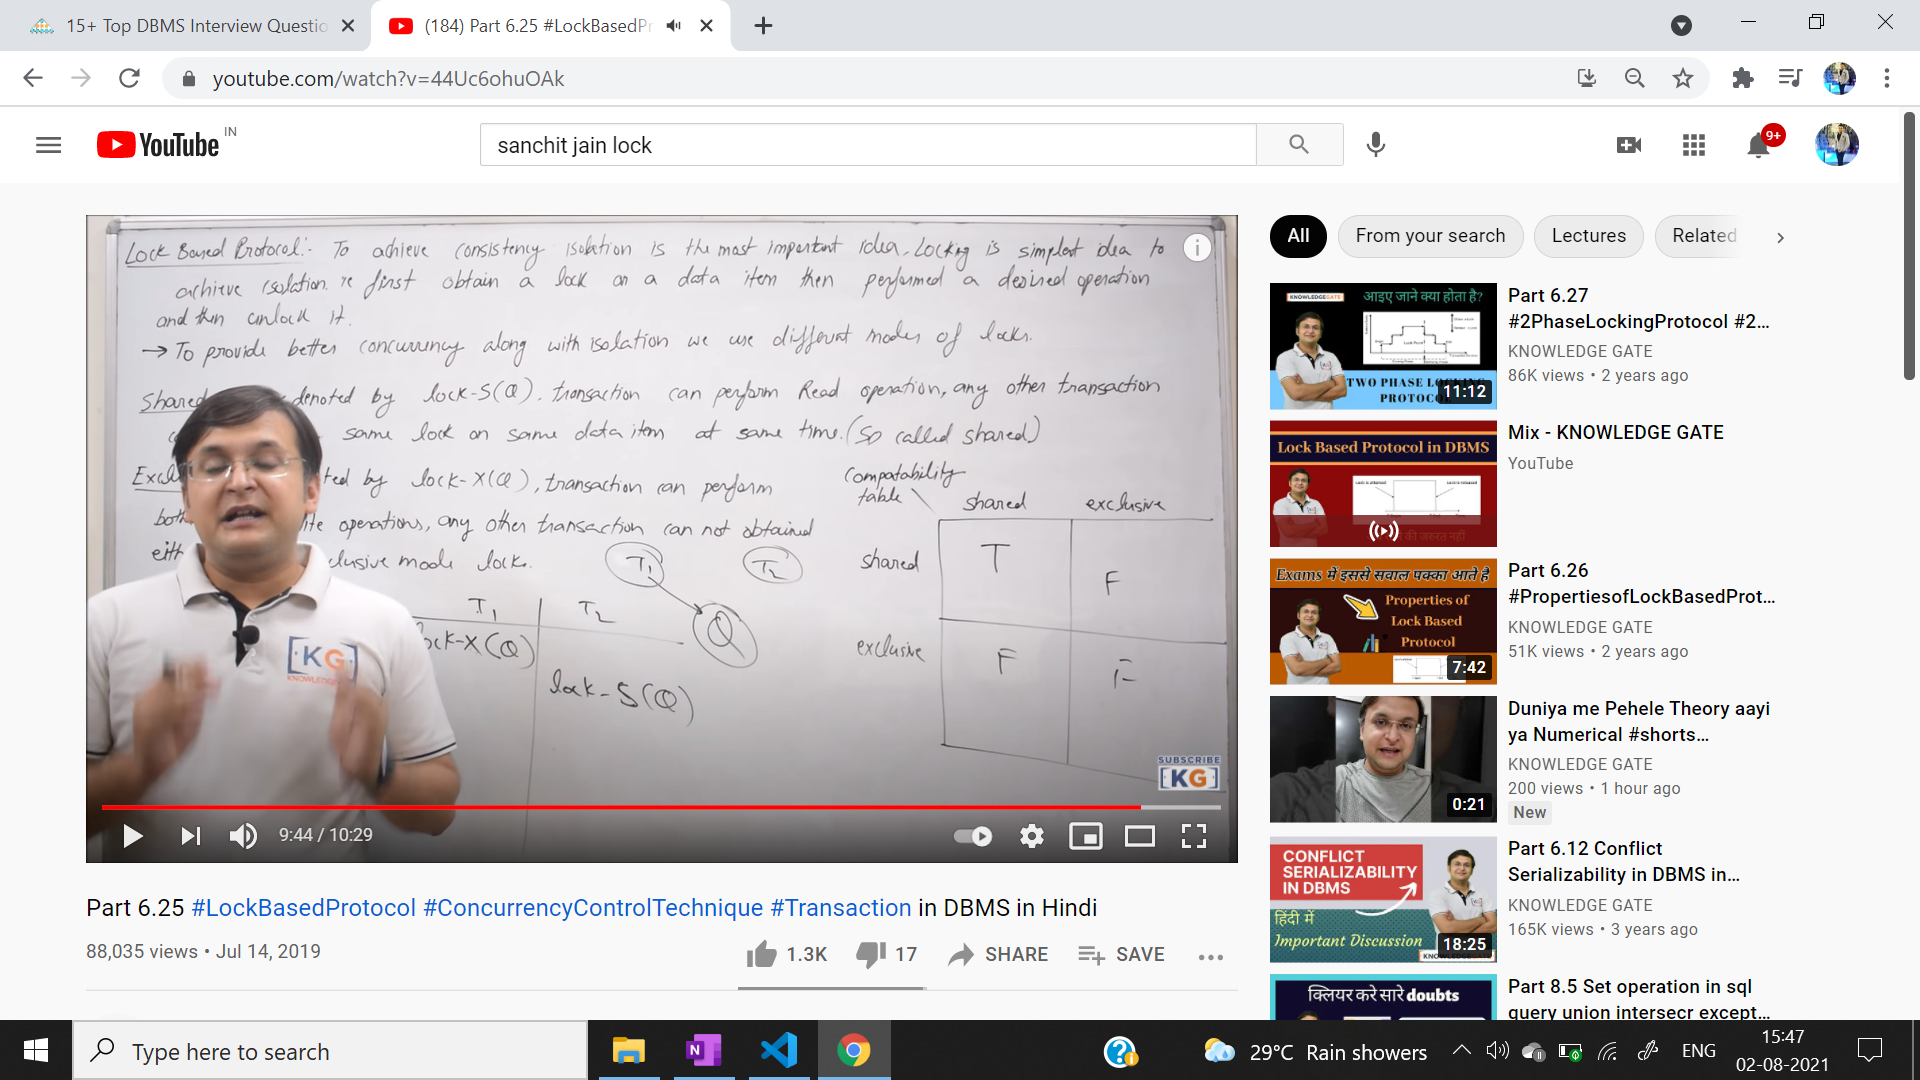 15+ Top DBMS Interview Questio
(184) Part 6.25 #LockBasedPr
youtube.com/watch?v=44Uc6ohuOAk
YouTube IN
sanchit jain lock
9+
Lock Based Protocol:- To achieve consistency isolation is the most important idea, Locking is simplest idea to
achieve isolation. first obtain a lock on a data item then performed a desired operation
and then unlock it.
→ To provide better concurrency along with isolation we use different modes of locks.
Shared denoted by lock-S(Q). transaction can perform Read operation, any other transaction
same lock on same data item at same time. (So called shared)
by lock-X(Q), transaction can perform
both operations, any other transaction can not obtained
mode lock.
compatability
table
shared exclusive
shared T F
exclusive F F
T1 T2
Q
T1 T2
lock-X(Q)
lock-S(Q)
KG
SUBSCRIBE
[KG]
9:44 / 10:29
Part 6.25 #LockBasedProtocol #ConcurrencyControlTechnique #Transaction in DBMS in Hindi
88,035 views • Jul 14, 2019
1.3K 17 SHARE SAVE
All From your search Lectures Related
KNOWLEDGEGATE
आइए जाने क्या होता है?
TWO PHASE LOCKING
PROTOCOL
11:12
Part 6.27
#2PhaseLockingProtocol #2...
KNOWLEDGE GATE
86K views • 2 years ago
Lock Based Protocol in DBMS
Mix - KNOWLEDGE GATE
YouTube
Exams में इससे सवाल पक्का आते है
Properties of
Lock Based
Protocol
7:42
Part 6.26
#PropertiesofLockBasedProt...
KNOWLEDGE GATE
51K views • 2 years ago
0:21
Duniya me Pehele Theory aayi
ya Numerical #shorts...
KNOWLEDGE GATE
200 views • 1 hour ago
New
CONFLICT
SERIALIZABILITY
IN DBMS
हिंदी में
Important Discussion
18:25
Part 6.12 Conflict
Serializability in DBMS in...
KNOWLEDGE GATE
165K views • 3 years ago
क्लियर करे सारे doubts
Part 8.5 Set operation in sql
query union intersecr except...
Type here to search
29°C Rain showers
ENG
15:47
02-08-2021